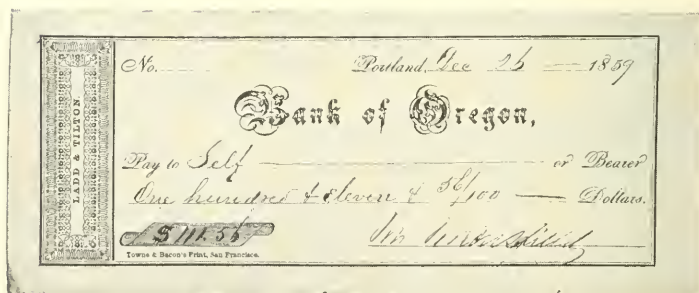 LADD & TILTON.
No. Portland, Dec 26 1859
Bank of Oregon,
Pay to Self or Bearer
One hundred & Eleven & 56/100 Dollars.
$111.56
Towne & Bacon's Print, San Francisco.